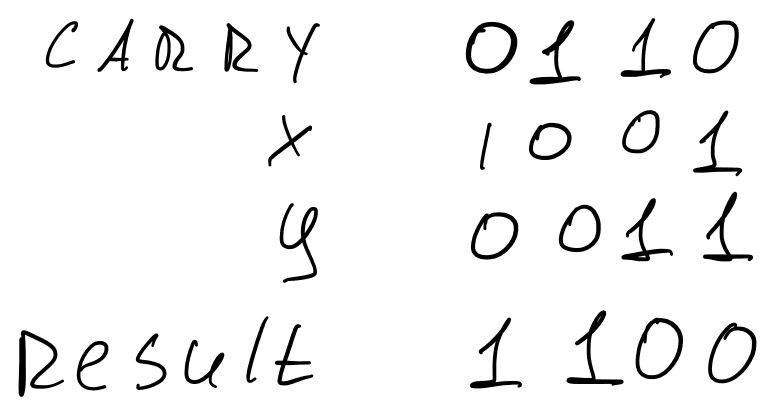 CARRY 0110
X 1001
y 0011
Result 1100